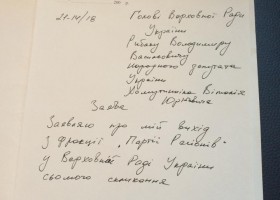 21.IV/16 Голові Верховної Ради
України
Рибаку Володимиру
Васильовичу
Народного депутата
України
Хомутинніка Віталія
Заява Юрійовича
Заявляю про мій вихід
з фракції „Партії Регіонів"
у Верховній Раді України
сьомого скликання